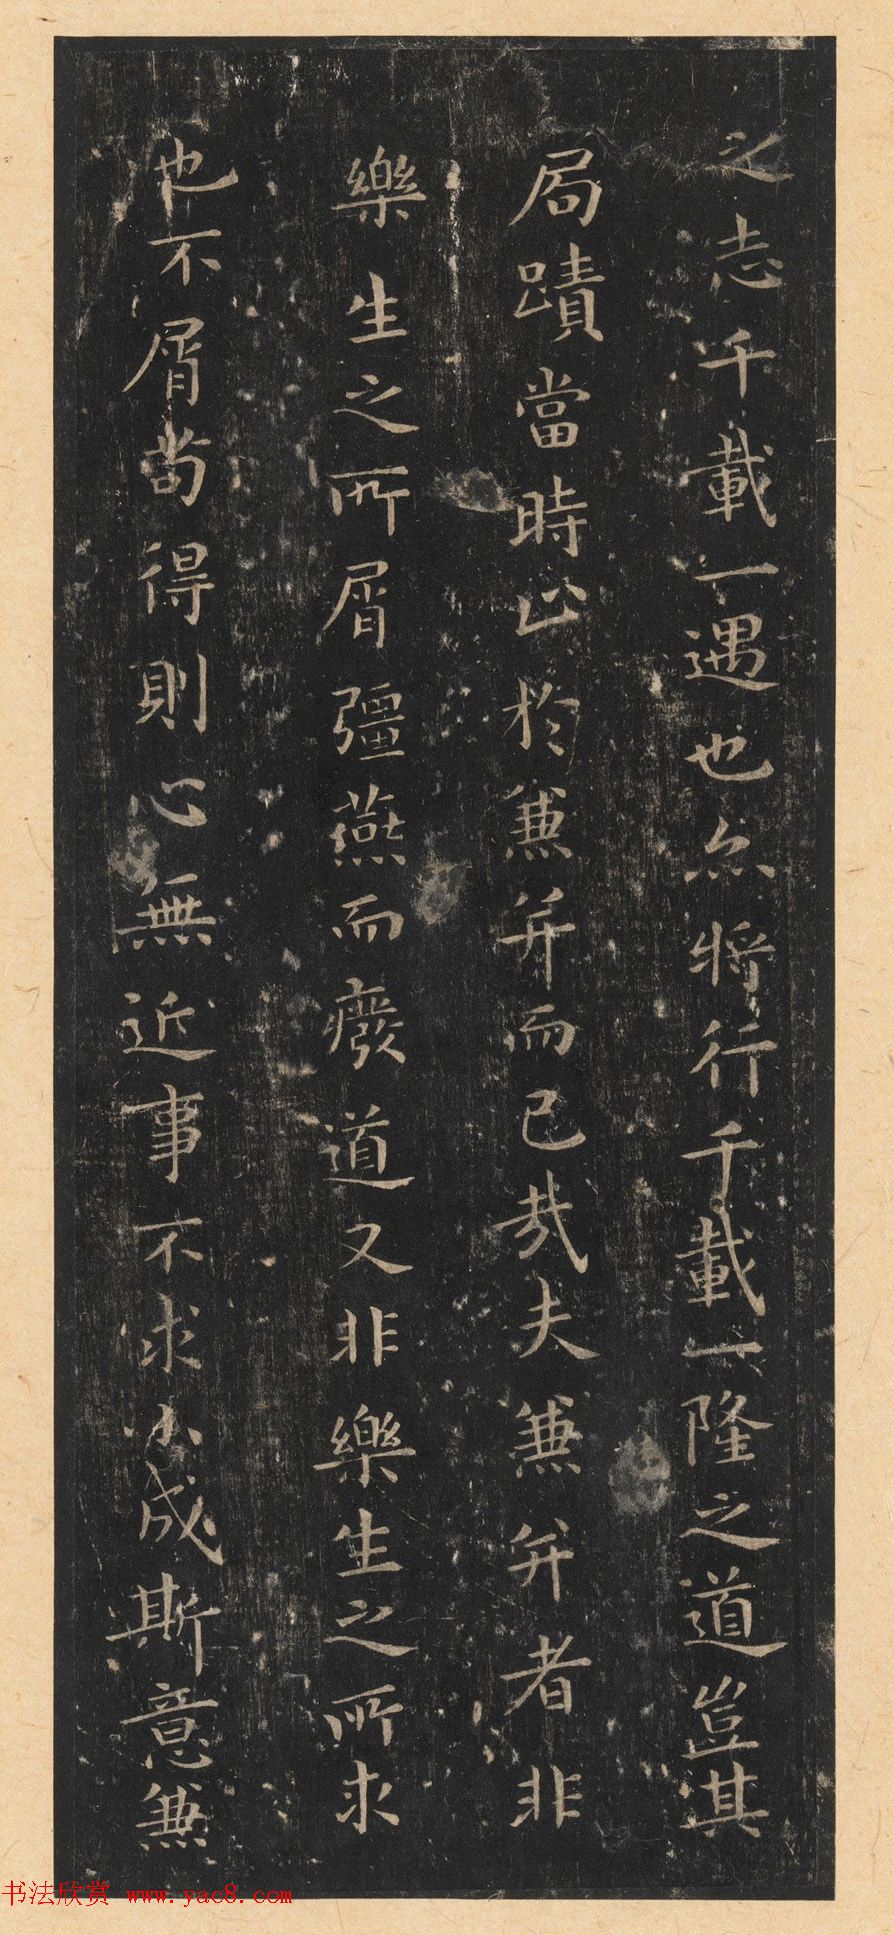 之志千載一遇也亦將行千載一隆之道豈其
局蹟當時止於兼并而已哉夫兼并者非
樂生之所屑彊燕而癈道又非樂生之所求
也不屑苟得則心無近事不求小成斯意兼
书法欣赏 www.yac8.com